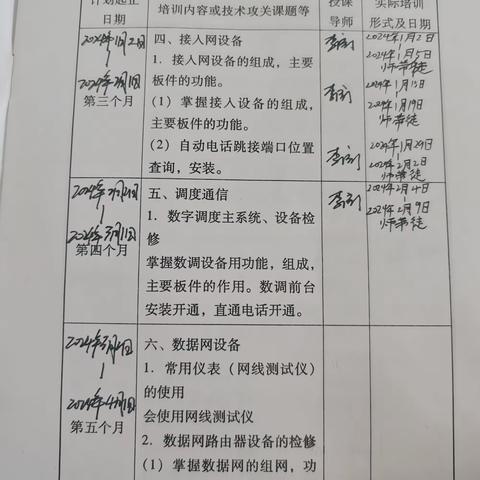 计划起止
日期
培训内容或技术攻关课题等
授课
导师
实际培训
形式及日期
2024年1月2日
第三个月
四、接入网设备
1. 接入网设备的组成，主要
板件的功能。
(1) 掌握接入设备的组成，
主要板件的功能。
(2) 自动电话跳接端口位置
查询，安装。
2024年1月2日
2024年1月5日
师带徒
2024年1月15日
2024年1月19日
师带徒
2024年1月29日
2024年2月2日
师带徒
第四个月
五、调度通信
1. 数字调度主系统、设备检
修
掌握数调设备用功能，组成，
主要板件的作用。数调前台
安装开通，直通电话开通。
2024年2月4日
2024年2月9日
师带徒
第五个月
六、数据网设备
1. 常用仪表（网线测试仪）
的使用
会使用网线测试仪
2. 数据网路由器设备的检修
(1) 掌握数据网的组网，功